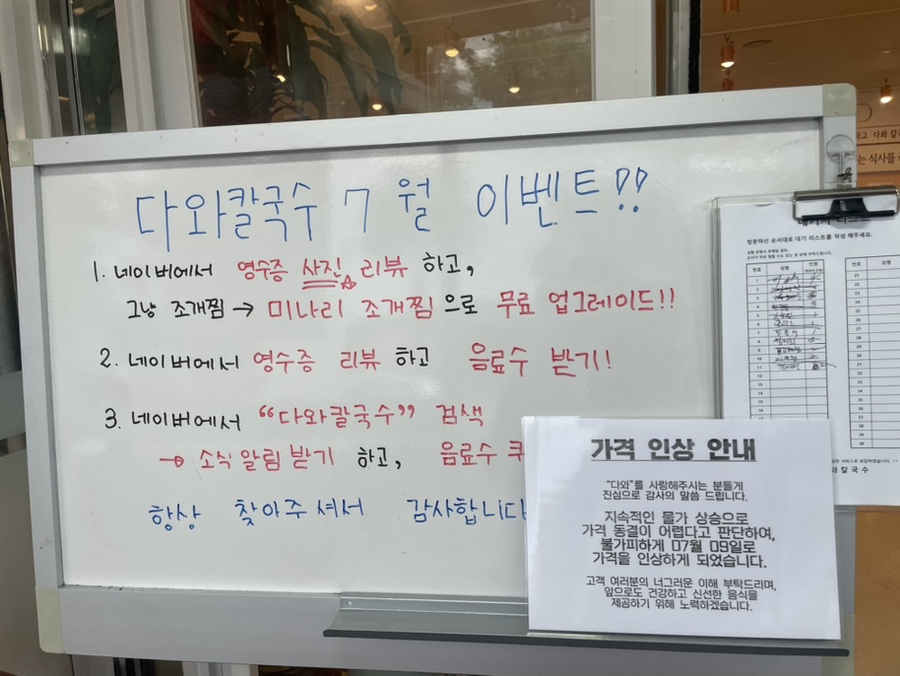 다와칼국수 7월 이벤트!!
1. 네이버에서 영수증 사진 ☆ 리뷰 하고,
그냥 조개찜 → 미나리 조개찜 으로 무료 업그레이드!!
2. 네이버에서 영수증 리뷰 하고 음료수 받기!
3. 네이버에서 “다와칼국수” 검색
→ 소식 알림 받기 하고, 음료수 쿠
항상 찾아주셔서 감사합니다
가격 인상 안내
“다와”를 사랑해주시는 분들게
진심으로 감사의 말씀 드립니다.
지속적인 물가 상승으로
가격 동결이 어렵다고 판단하여,
불가피하게 07월 09일로
가격을 인상하게 되었습니다.
고객 여러분의 너그러운 이해 부탁드리며,
앞으로도 건강하고 신선한 음식을
제공하기 위해 노력하겠습니다.
방문하신 순서대로 대기 리스트를 작성 해주세요.
번호 성명 인원
1
2
3
4
5
6
7
8
9
10
11
12
13
14
15
번호 성명
21
22
와칼국수
하고 '다와 칼
는 식사를